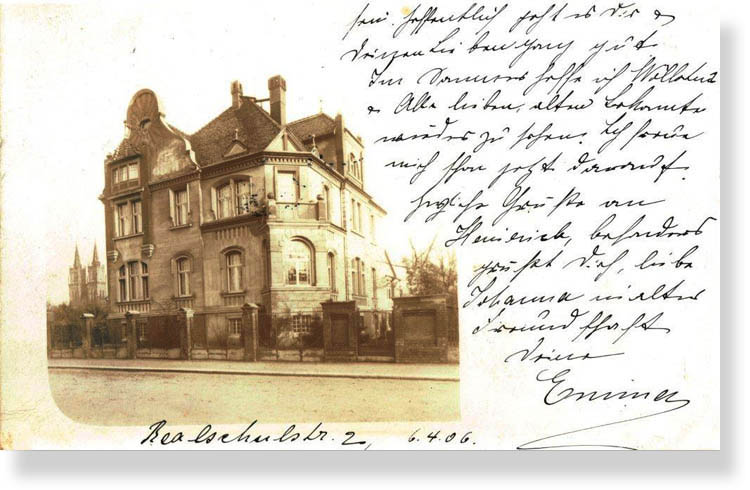 sein. Hoffentlich geht es Dir &
Deinen Lieben ganz gut.
Im Sommer hoffe ich
& Alle lieben, alten Bekannte
wieder zu sehen. Ich freue
mich schon jetzt darauf.
Herzliche Grüße an
Heinrich, besonders
grüßt Dich, liebe
Johanna in alter
Freundschaft
Deine
Emma
Realschulstr. 2, 6.4.06.